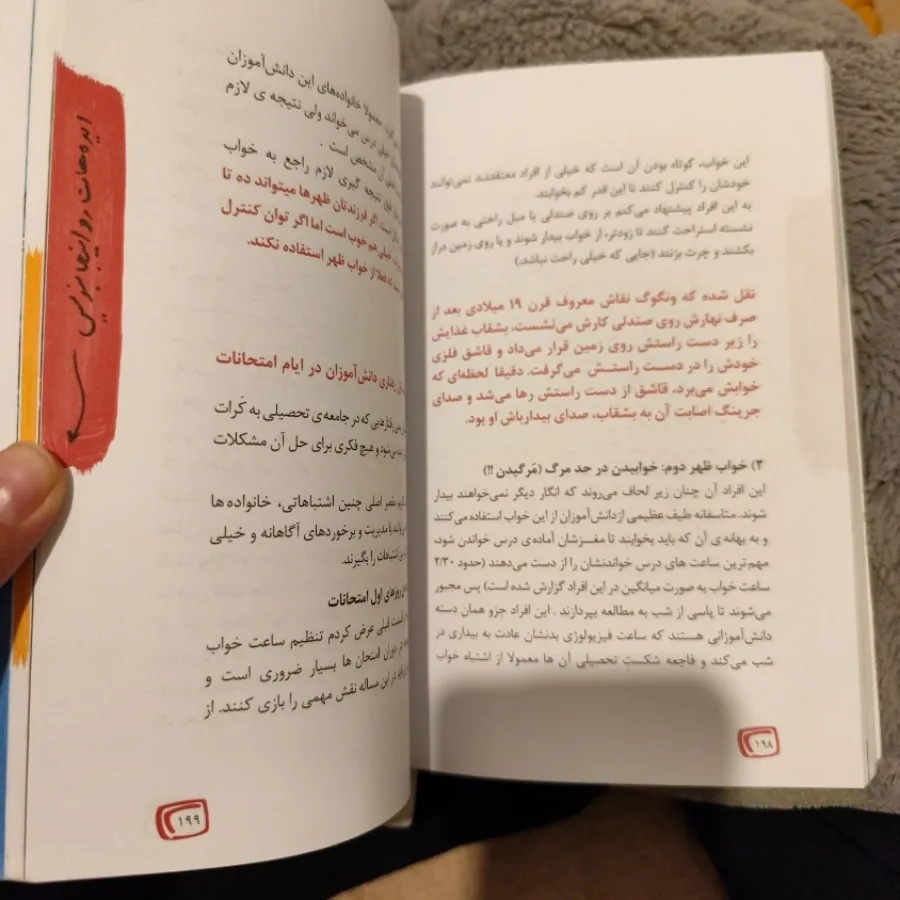 این خواب، کوتاه بودن آن است که خیلی از افراد معتقدند نمی‌توانند
خودشان را کنترل کنند تا این قدر کم بخوابند.
به این افراد پیشنهاد می‌کنم بر روی صندلی یا مبل راحتی به صورت
نشسته استراحت کنند تا زودتر، از خواب بیدار شوند و یا روی زمین دراز
بکشند و چرت بزنند (جایی که خیلی راحت نباشد.)
نقل شده که ونگوگ نقاش معروف قرن ۱۹ میلادی بعد از
صرف نهارش روی صندلی کارش می‌نشست، بشقاب غذایش
را زیر دست راستش روی زمین قرار می‌داد و قاشق فلزی
خودش را در دست راستش می‌گرفت. دقیقا لحظه‌ای که
خوابش می‌برد، قاشق از دست راستش رها می‌شد و صدای
جرینگِ اصابت آن به بشقاب، صدای بیدارباش او بود.
۳) خواب ظهر دوم: خوابیدن در حد مرگ (مَرگیدن !!)
این افراد آن چنان زیر لحاف می‌روند که انگار دیگر نمی‌خواهند بیدار
شوند. متاسفانه طیف عظیمی از دانش‌آموزان از این خواب استفاده می‌کنند
و به بهانه‌ی آن که باید بخوابند تا مغزشان آماده‌ی درس خواندن شود،
مهم‌ترین ساعت های درس خواندنشان را از دست می‌دهند (حدود ۲/۳۰
ساعت خواب به صورت میانگین در این افراد گزارش شده است) پس مجبور
می‌شوند تا پاسی از شب به مطالعه بپردازند . این افراد جزو همان دسته
دانش‌آموزانی هستند که ساعت فیزیولوژی بدنشان عادت به بیداری در
شب می‌کند و فاجعه شکستِ تحصیلی آن ها معمولا از اشتباه خواب
۱۹۸
معمولا خانواده‌های این دانش‌آموزان
خیلی درس می‌خواند ولی نتیجه ی لازم
مشخص است .
نتیجه گیری لازم راجع به خواب
اگر فرزندتان ظهرها میتواند ده تا
خیلی هم خوب است اما اگر توان کنترل
که فعلا از خواب ظهر استفاده نکند.
رفتاری دانش‌آموزان در ایام امتحانات
رفتارهایی که در جامعه‌ی تحصیلی به کَرات
می‌شود و هیچ فکری برای حل آن مشکلات
مقصر اصلی چنین اشتباهاتی، خانواده ها
با مدیریت و برخوردهای آگاهانه و خیلی
اشتباهات را بگیرند.
روزهای اول امتحانات
قسمت قبلی عرض کردم تنظیم ساعت خواب
در دوران امتحان ها بسیار ضروری است و
در این مساله نقش مهمی را بازی کنند. از
۱۹۹